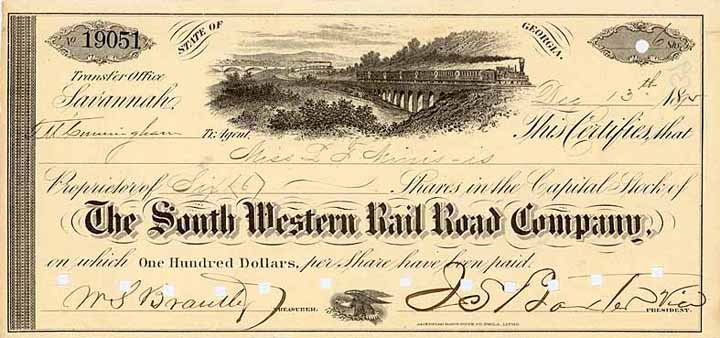 No 19051
STATE OF
GEORGIA.
6 SHS.
Transfer Office
Savannah,
Dec 13th 18
T M Cunningham Tr. Agent.
This Certifies, that
Miss is
Proprietor of Six (6) Shares in the Capital Stock of
The South Western Rail Road Company,
on which One Hundred Dollars, per Share have been paid.
W S Brantley TREASURER.
J S Baxter Vice PRESIDENT.